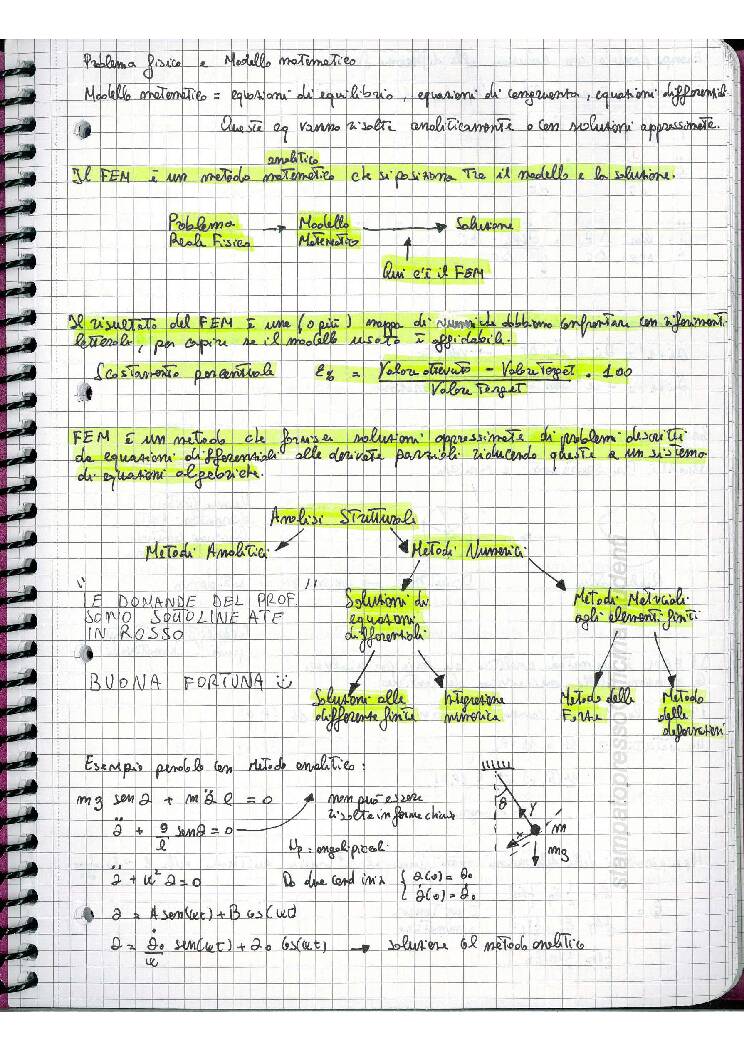 Problema fisico e Modello matematico
Modello matematico = equazioni di equilibrio, equazioni di congruenza, equazioni differenziali
Queste eq vanno risolte analiticamente o con soluzioni approssimate.
analitico
Il FEM è un metodo matematico che si posiziona tra il modello e la soluzione.
Problema → Modello → Soluzione
Reale Fisico Matematico
Qui c'è il FEM
Il risultato del FEM è una (o più) mappa di numeri che dobbiamo confrontare con riferimenti
letterali, per capire se il modello usato è affidabile.
Scostamento percentuale E% = Valore ottenuto - Valore Target · 100
Valore Target
FEM è un metodo che fornisce soluzioni approssimate di problemi descritti
da equazioni differenziali alle derivate parziali riducendo queste a un sistema
di equazioni algebriche.
Analisi Strutturale
Metodi Analitici Metodi Numerici
" LE DOMANDE DEL PROF. "
SONO SOTTOLINEATE
IN ROSSO
BUONA FORTUNA
Soluzioni di
equazioni
differenziali
Metodi Matriciali
agli elementi finiti
Soluzioni alle
differenze finite
Integrazione
numerica
Metodo delle
Forze
Metodo
delle
deformazioni
Esempio pendolo con Metodo analitico:
mg sen ϑ + m ϑ̈ l = 0
non può essere
risolta in forma chiusa
ϑ̈ + g/l sen ϑ = 0
Hp = angoli piccoli
ϑ̈ + ω² ϑ = 0
Do due cond iniz { ϑ(0) = ϑ₀
ϑ̇(0) = ϑ̇₀
ϑ = A sen(ωt) + B cos(ωt)
ϑ = ϑ̇₀/ω sen(ωt) + ϑ₀ cos(ωt) → soluzione col metodo analitico
θ
y
x
m
mg